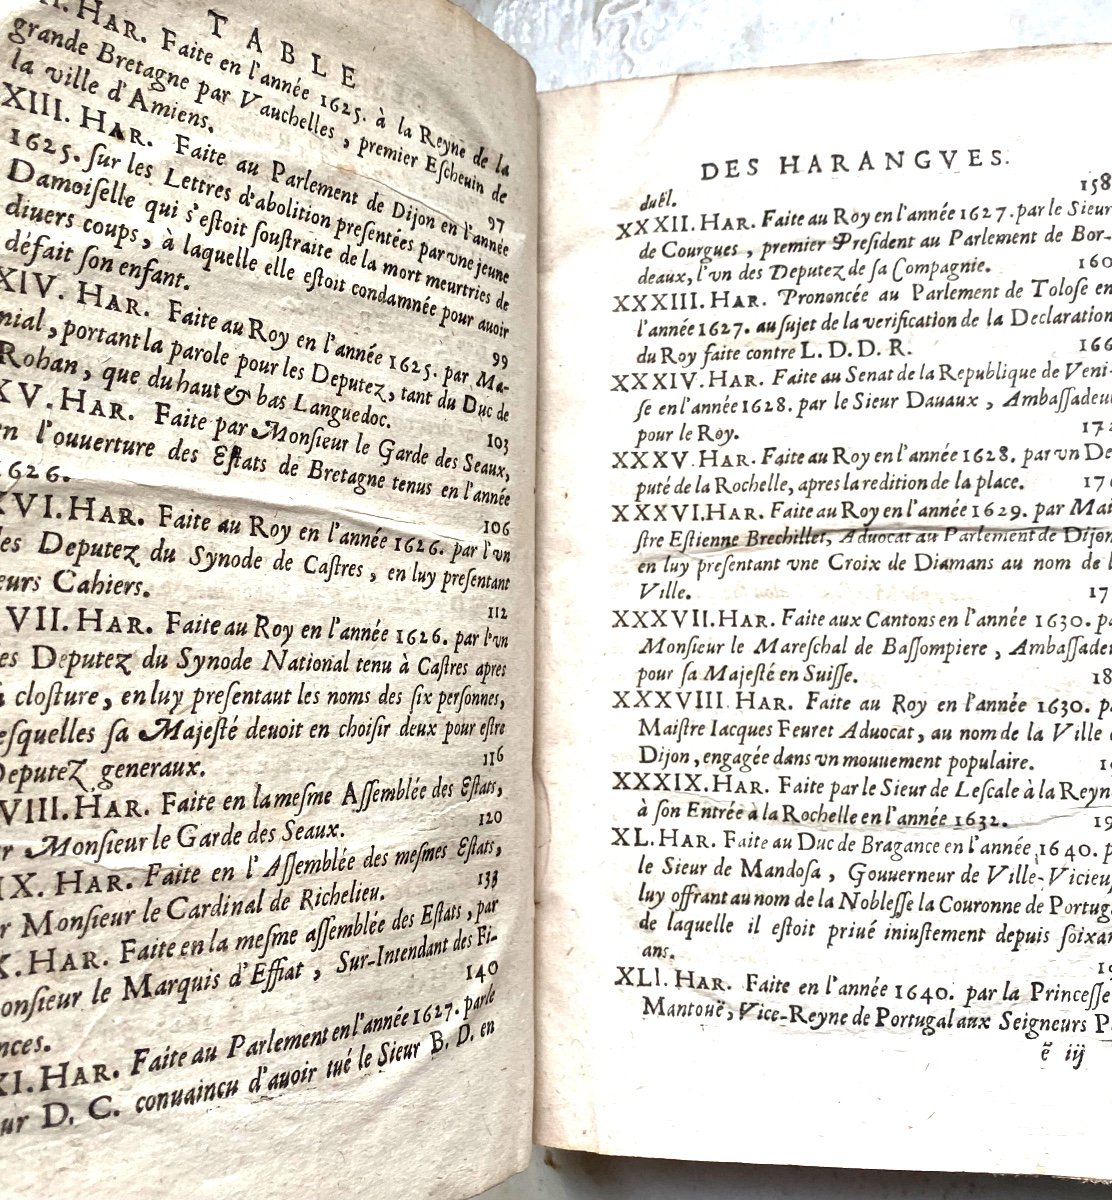 TABLE
II. HAR. Faite en l'année 1625. à la Reyne de la
grande Bretagne par Vauchelles, premier Escheuin de
la ville d'Amiens. 97
XIII. HAR. Faite au Parlement de Dijon en l'année
1625. ſur les Lettres d'abolition preſentées par vne jeune
Damoiſelle qui s'eſtoit ſouſtraite de la mort meurtries de
diuers coups, à laquelle elle eſtoit condamnée pour auoir
défait ſon enfant. 99
XIV. HAR. Faite au Roy en l'année 1625. par Ma-
nial, portant la parole pour les Deputez, tant du Duc de
Rohan, que du haut & bas Languedoc. 103
XV. HAR. Faite par Monſieur le Garde des Seaux,
en l'ouuerture des Eſtats de Bretagne tenus en l'année
1626. 106
XVI. HAR. Faite au Roy en l'année 1626. par l'vn
des Deputez du Synode de Caſtres, en luy preſentant
leurs Cahiers. 112
VII. HAR. Faite au Roy en l'année 1626. par l'vn
des Deputez du Synode National tenu à Caſtres apres
cloſture, en luy preſentaut les noms des ſix perſonnes,
eſquelles ſa Majeſté deuoit en choiſir deux pour eſtre
Deputez generaux. 116
VIII. HAR. Faite en la meſme Aſſemblée des Eſtats,
Monſieur le Garde des Seaux. 120
IX. HAR. Faite en l'Aſſemblée des meſmes Eſtats,
Monſieur le Cardinal de Richelieu. 133
X. HAR. Faite en la meſme aſſemblée des Eſtats, par
Monſieur le Marquis d'Effiat, Sur-Intendant des Fi-
nces. 140
XI. HAR. Faite au Parlement en l'année 1627. par le
D. C. conuaincu d'auoir tué le Sieur B. D. en
DES HARANGVES.
duël. 158
XXXII. HAR. Faite au Roy en l'année 1627. par le Sieur
de Courgues, premier Preſident au Parlement de Bor-
deaux, l'vn des Deputez de ſa Compagnie. 160
XXXIII. HAR. Prononcée au Parlement de Toloſe en
l'année 1627. au ſujet de la verification de la Declaration
du Roy faite contre L. D. D. R. 166
XXXIV. HAR. Faite au Senat de la Republique de Veni-
ſe en l'année 1628. par le Sieur Dauaux, Ambaſſadeur
pour le Roy. 172
XXXV. HAR. Faite au Roy en l'année 1628. par vn De-
puté de la Rochelle, apres la redition de la place. 17
XXXVI. HAR. Faite au Roy en l'année 1629. par Mai-
ſtre Eſtienne Brechillet, Aduocat au Parlement de Dijon
en luy preſentant vne Croix de Diamans au nom de l
Ville. 17
XXXVII. HAR. Faite aux Cantons en l'année 1630. pa
Monſieur le Mareſchal de Baſſompiere, Ambaſſadeu
pour ſa Majeſté en Suiſſe. 18
XXXVIII. HAR. Faite au Roy en l'année 1630. pa
Maiſtre Iacques Feuret Aduocat, au nom de la Ville
Dijon, engagée dans vn mouuement populaire. 1
XXXIX. HAR. Faite par le Sieur de Leſcale à la Reyne
à ſon Entrée à la Rochelle en l'année 1632. 19
XL. HAR. Faite au Duc de Bragance en l'année 1640. p
le Sieur de Mandoſa, Gouuerneur de Ville-Vicieu,
luy offrant au nom de la Nobleſſe la Couronne de Portuga
de laquelle il eſtoit priué iniuſtement depuis ſoixan
ans. 19
XLI. HAR. Faite en l'année 1640. par la Princeſſe
Mantouë, Vice-Reyne de Portugal aux Seigneurs P
ẽ iij